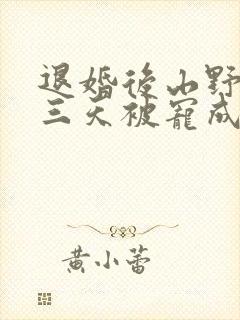 退婚後山野
三天被寵成
黄小蕾